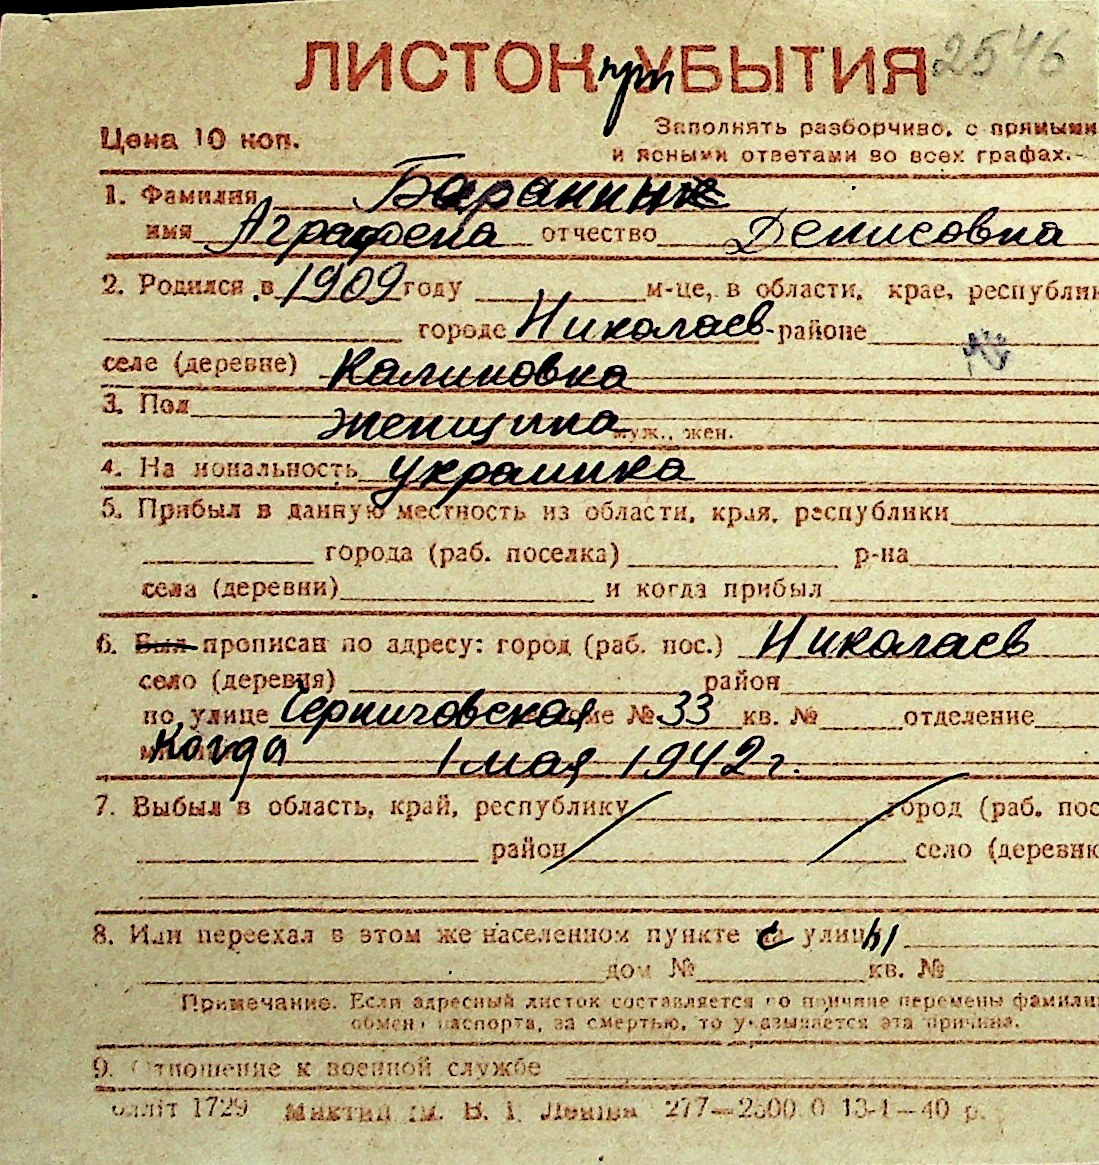 ЛИСТОК при УБЫТИЯ 2546
Цена 10 коп.
Заполнять разборчиво, с прямыми
и ясными ответами во всех графах.
1. Фамилия
имя Аграфена отчество Денисовна
2. Родился в 1909 году м-це, в области, крае, республик
городе Николаев районе
селе (деревне) Калиновка
3. Пол женщина муж., жен.
4. На иональность украинка
5. Прибыл в данную местность из области, края, республики
города (раб. поселка) р-на
села (деревни) и когда прибыл
6. Был прописан по адресу: город (раб. пос.) Николаев
село (деревня) район
по улице Черниговская доме № 33 кв. № отделение
когда 1 мая 1942 г.
7. Выбыл в область, край, республику город (раб. пос
район село (деревню
8. Или переехал в этом же населенном пункте с улицы
дом № кв. №
Примечание. Если адресный листок составляется по причине перемены фамилии
обмена паспорта, за смертью, то указывается эта причина.
9. Отношение к военной службе
облліт 1729 им. В. І. Леніна 277—2500.0 13-1—40 р.